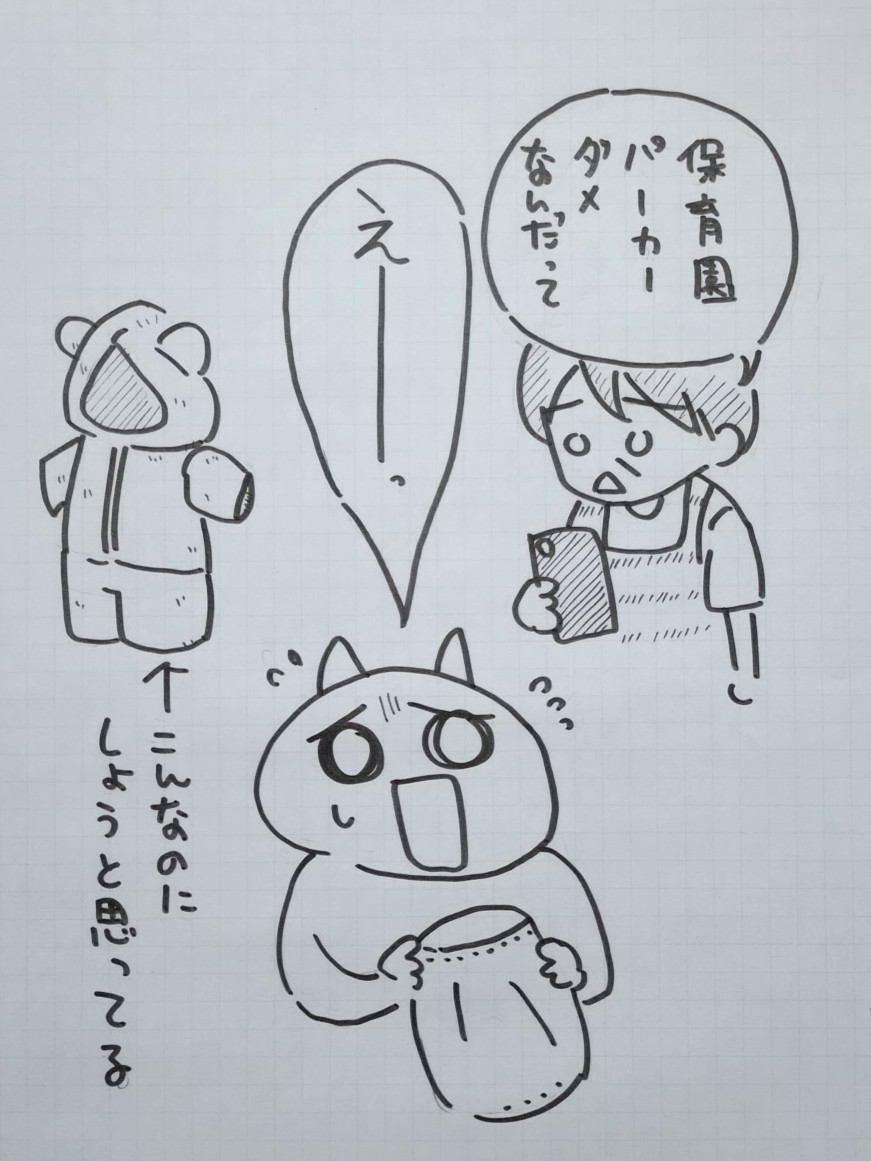 保育園
パーカー
ダメ
なんだって
え ー っ
↑こんなのに
しようと思ってる